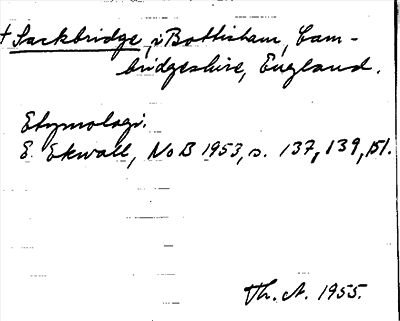 † Sackbridge, i Bottisham, Cam-
bridgeshire, England.
Etymologi.
E. Ekwall, NoB 1953, s. 137, 139, 151.
Th. A. 1955.